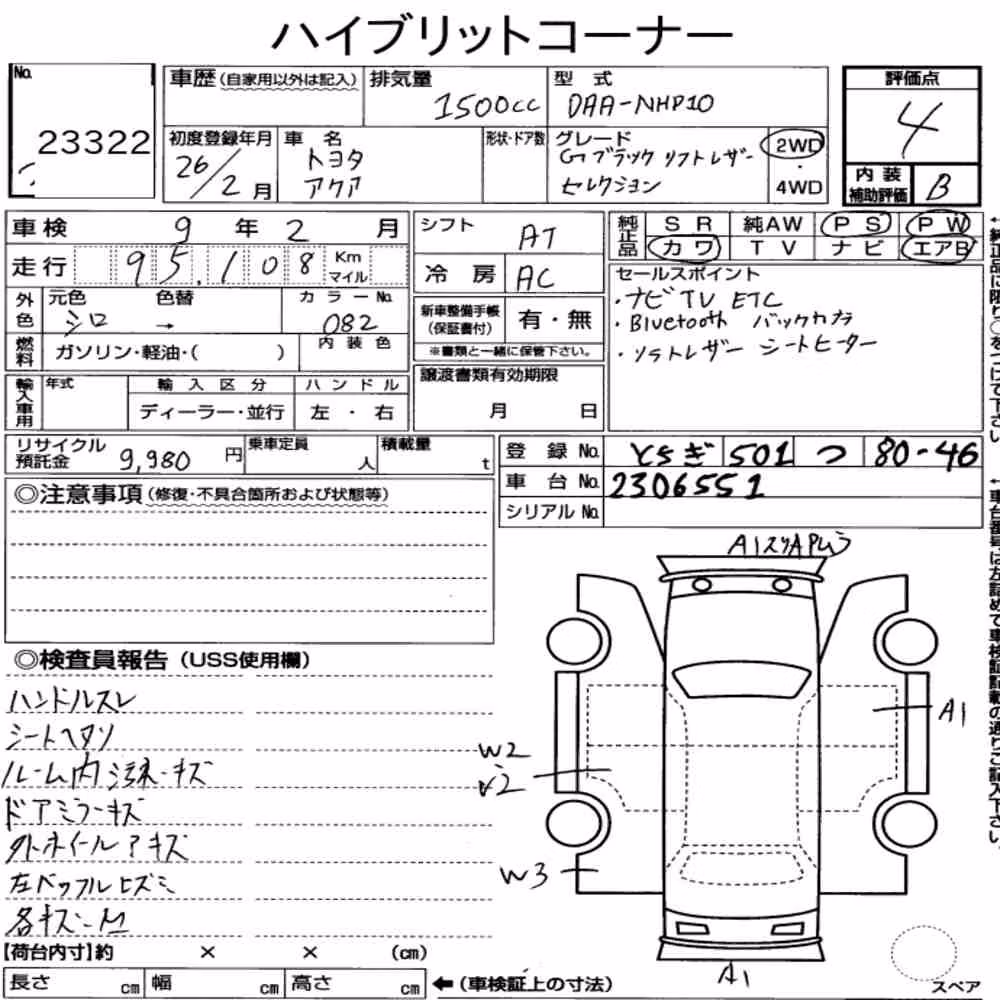 ハイブリットコーナー
No.
23322
車歴(自家用以外は記入)
排気量
1500cc
型式
DAA-NHP10
評価点
4
内装補助評価
B
初度登録年月
26/2月
車名
トヨタ
アクア
形状・ドア数
グレード
Gブラックソフトレザー
セレクション
2WD
・
4WD
車検 9年2月
走行 95,108 Km マイル
シフト
AT
冷房
AC
純正品
SR 純AW PS PW
カワ TV ナビ エアB
セールスポイント
・ナビTV ETC
・Bluetooth バックカメラ
・ソフトレザー シートヒーター
外色
元色 色替 カラーNo.
シロ → 082
燃料
ガソリン・軽油・( )
内装色
新車整備手帳(保証書付)
有・無
※書類と一緒に保管下さい。
譲渡書類有効期限
月 日
輸入車用
年式 輸入区分 ハンドル
ディーラー・並行 左・右
リサイクル預託金 9,980円
乗車定員 人
積載量 t
登録No. とちぎ 501 つ 80-46
車台No. 2306551
シリアルNo.
◎注意事項(修復・不具合箇所および状態等)
◎検査員報告(USS使用欄)
ハンドルスレ
シートヘタリ
ルーム内汚れ・キズ
ドアミラーキズ
外ホイールアキズ
左バッフルヒズミ
各キズ
A1スリAPムラ
A1
W2
W3
A1
【荷台内寸】約 × × (cm)
長さ cm 幅 cm 高さ cm
←(車検証上の寸法)
スペア
↑純正品に限り○をつけて下さい。
↑車台番号は左詰めで車検証記載の通りご記入下さい。